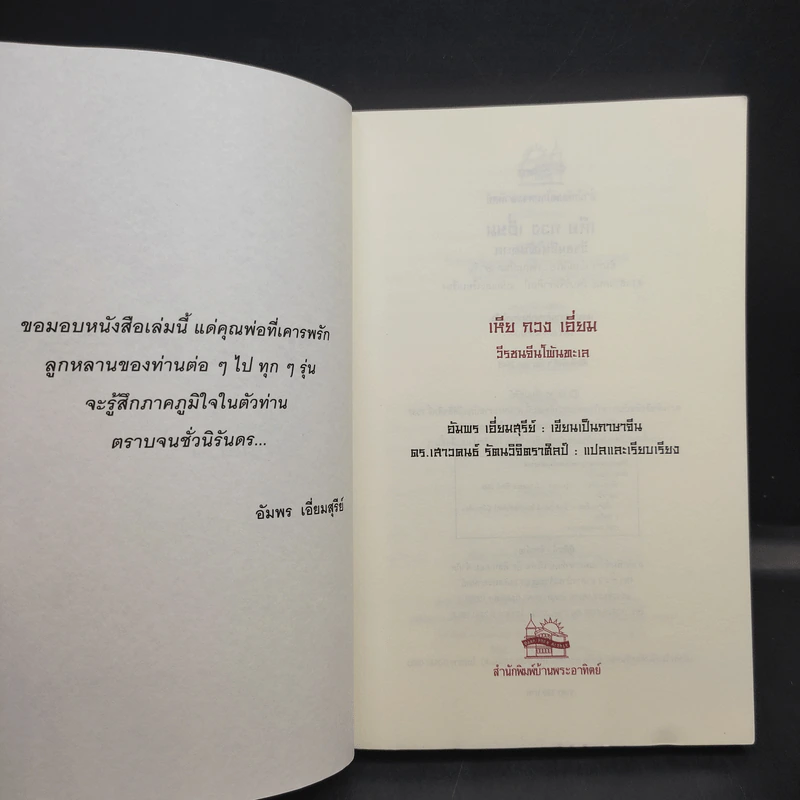 ขอมอบหนังสือเล่มนี้ แด่คุณพ่อที่เคารพรัก
ลูกหลานของท่านต่อ ๆ ไป ทุก ๆ รุ่น
จะรู้สึกภาคภูมิใจในตัวท่าน
ตราบจนชั่วนิรันดร...
อัมพร เอี่ยมสุรีย์
เหีย กวง เอี่ยม
วีรชนจีนโพ้นทะเล
อัมพร เอี่ยมสุรีย์ : เขียนเป็นภาษาจีน
ดร.เสาวคนธ์ รัตนวิจิตราศิลป์ : แปลและเรียบเรียง
สำนักพิมพ์บ้านพระอาทิตย์